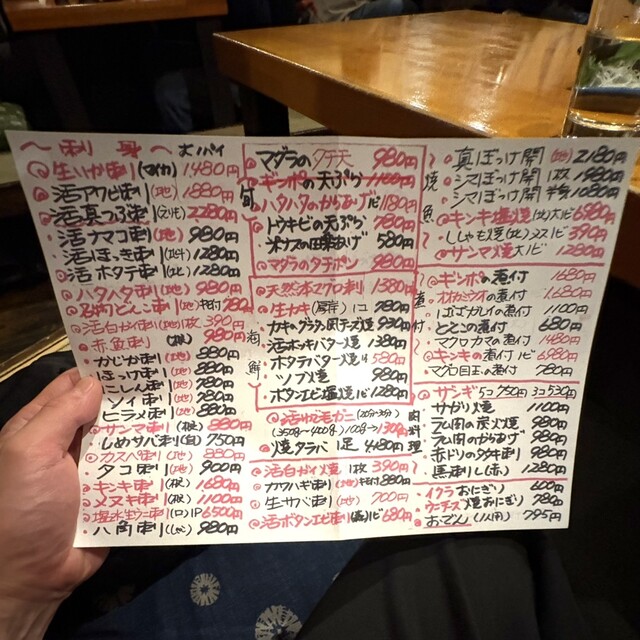 〜刺身へ
◎生いか刺(マイカ)1480円
・活アワビ刺(地)1880円
◎活真つぶ刺(エリモ)2280円
・活ナマコ刺(地)980円
・活ほっき刺 1280円
・活ホタテ刺 1280円
・ハタハタ刺(地)980円
◎活白がい刺(地)1枚390円
◎赤魚刺 980円
・かじか刺(地)880円
・ほっけ刺(地)880円
・にしん刺(地)780円
・ソイ刺(地)780円
・ヒラメ刺(地)880円
◎サンマ刺(根)880円
・しめサバ刺 750円
・カスベ刺(地)880円
・タコ刺(地)900円
・キンキ刺(根)1680円
・メヌキ刺(根)1100円
◎塩水生ウニ刺 1P 6500円
・八角刺 980円
旬
◎マダラのタチ天 980円
◎ギンポの天ぷら 1100円
・ハタハタのからあげ1ビ1180円
・トウキビの天ぷら 780円
580円
◎マダラのタチポン 980円
海鮮
◎天然本マグロ刺 1380円
◎生カキ(厚岸)1コ 780円
・活ホッキバター焼 1380円
・ホタテバター焼 580円
・ツブ焼 980円
・ボタンエビ塩焼1ビ 1280円
◎活ゆで毛ガニ
◎焼タラバ 1足 4480円
◎活白ガイ焼 1枚 390円
・カワハギ刺(地)キモ付880円
・生サバ刺(地)700円
◎活ボタンエビ刺 1ビ 680円
焼魚
・真ほっけ開(地)2180円
・シマほっけ開 1枚 1980円
・シマほっけ開 半身 1080円
◎キンキ塩焼 大1ビ 6980円
・ししゃも焼(地)メス1ビ 390円
◎サンマ焼大1ビ 1280円
煮付
◎ギンポの煮付 1680円
・オオカミウオの煮付 1680円
・はざがれいの煮付 1100円
・ととこの煮付 680円
・マグロカマの煮付 1480円
◎キンキの煮付 1ビ 6980円
・マグロ目玉の煮付 780円
肉料理
◎サンギ 5コ750円 3コ530円
・サガリ焼 1100円
・ラム肉の炭火焼 980円
・ラム肉のからあげ 980円
・赤ドリのタタキ刺 980円
・馬刺し(赤)1280円
・イクラおにぎり 600円
・ウニチーズ焼おにぎり 780円
◎おでん(1人用)795円